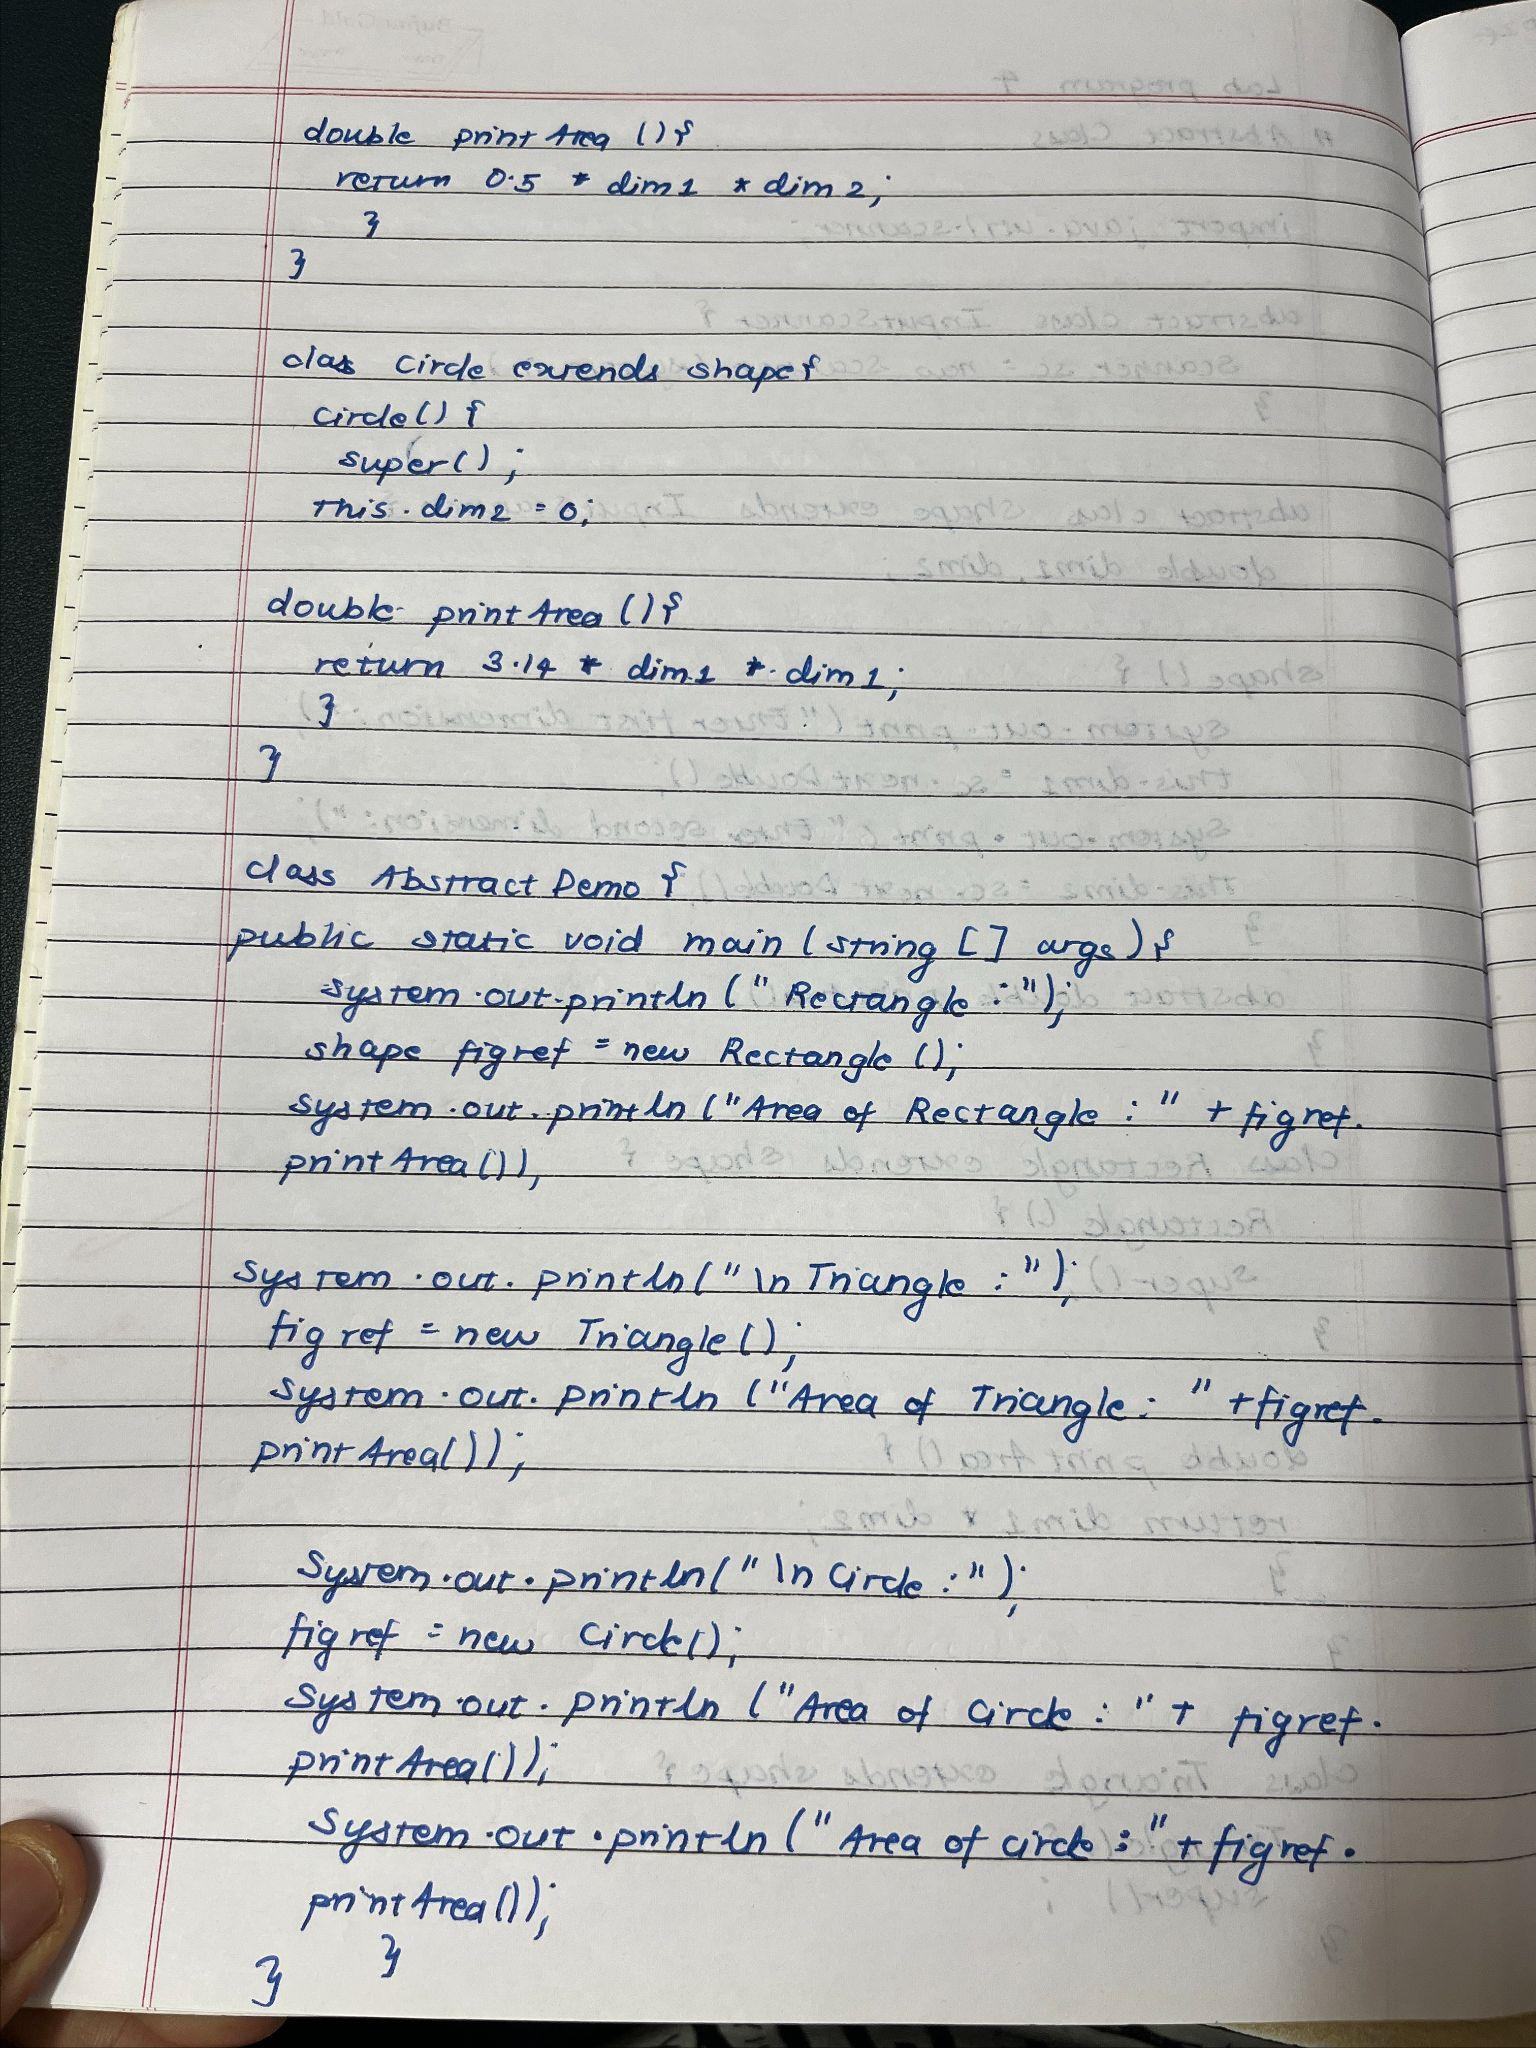 double printArea (){
return 0.5 * dim1 * dim2;
}
}
class Circle extends shape{
circle() {
super();
This.dim2 = 0;
double printArea (){
return 3.14 * dim1 * dim1;
}
}
class Abstract Demo {
public static void main (string [] args){
system.out.println ("Rectangle :");
shape figref = new Rectangle ();
system.out.println ("Area of Rectangle : " + figref.
printArea()),
System.out.println("\n Triangle :");
figref = new Triangle();
System.out.println ("Area of Triangle : " +figref.
printArea());
System.out.println(" \n Circle :");
figref = new Circle();
System.out.println ("Area of Circle : " + figref.
printArea());
System.out.println (" Area of circle : "+ figref.
printArea());
}
}